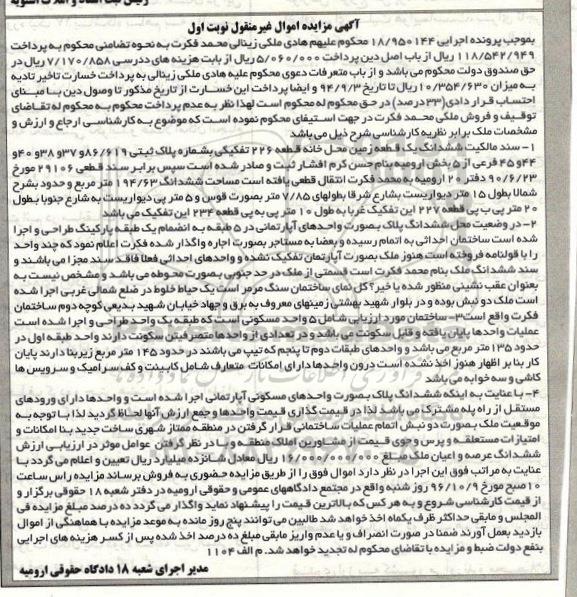 رئیس ثبت اسناد و املاک اشنویه
آگهی مزایده اموال غیرمنقول نوبت اول
بموجب پرونده اجرایی ۱۸/۹۵۰۱۴۴ محکوم علیهم هادی ملکی زینالی محمد فکرت به نحوه تضامنی محکوم به پرداخت
۱۱۸/۵۴۲/۹۴۹ ریال از باب اصل دین پرداخت ۵/۰۶۰/۰۰۰ ریال از بابت هزینه های دادرسی ۷/۱۷۰/۸۵۸ ریال در
حق صندوق دولت محکوم می باشد و از باب متفرعات دعوی محکوم علیه هادی ملکی زینالی به پرداخت خسارت تاخیر تادیه
به میزان ۱۰/۳۵۴/۶۳۰ ریال تا تاریخ ۹۴/۹/۳ و ایضا پرداخت این خسارت از تاریخ مذکور تا وصول دین با مبنای
احتساب قرار دادی (۳۳ درصد) در حق محکوم له محکوم است لهذا نظر به عدم پرداخت محکوم به محکوم له تقاضای
توقیف و فروش ملکی محمد فکرت در جهت استیفای محکوم نموده است که موضوع به کارشناسی ارجاع و ارزش و
مشخصات ملک برابر نظریه کارشناسی شرح ذیل می باشد
۱- سند مالکیت ششدانگ یک قطعه زمین محل خانه قطعه ۲۲۶ تفکیکی بشماره پلاک ثبتی ۸۶/۶۱۹ و ۳۷ و ۳۸ و ۴۰ و
۴۴ و ۴۵ فرعی از ۵ بخش ارومیه بنام حسن کرم افشار ثبت و صادر شده است سپس برابر سند قطعی ۲۹۱۰۶ مورخ
۹۰/۶/۲۳ دفتر ۲۰ ارومیه به محمد فکرت انتقال قطعی یافته است مساحت ششدانگ ۱۹۴/۶۳ متر مربع و حدود بشرح
شمالا بطول ۱۵ متر دیواریست بشارع شرقا بطولهای ۷/۸۵ متر بصورت قوس و ۵ متر پی دیواریست به شارع جنوبا بطول
۲۰ متر پی ب پی قطعه ۲۲۷ این تفکیک غربا به طول ۱۰ متر پی به پی قطعه ۲۳۴ این تفکیک می باشد
۲- در وضعیت محل ششدانگ پلاک بصورت واحدهای آپارتمانی در ۵ طبقه به انضمام یک طبقه پارکینگ طراحی و اجرا
شده است ساختمان احداثی به اتمام رسیده و بعضا به مستاجر بصورت اجاره واگذار شده فکرت اعلام نمود که چند واحد
را با قولنامه فروخته است هنوز ملک بصورت آپارتمان تفکیک نشده و واحدهای احداثی فعلا فاقد سند مجزا می باشند و
سند ششدانگ ملک بنام محمد فکرت است قسمتی از ملک در حد جنوبی بصورت محوطه می باشد و مشخص نیست به
بعنوان عقب نشینی منظور شده یا خیر؟ کل نمای ساختمان سنگ مرمر است یک حیاط خلوط در ضلع شمالی غربی اجرا شده
است ملک دو نبش بوده و در بلوار شهید بهشتی زمینهای معروف به برق و جهاد خیابان شهید بدیعی کوچه دوم ساختمان
فکرت واقع است ۳- ساختمان مورد ارزیابی شامل ۵ واحد مسکونی است که طبقه یک واحد طراحی و اجرا شده است
عملیات واحدها پایان یافته و قابل سکونت می باشد و در تعدادی از واحدها متصرفین سکونت دارند واحد طبقه اول در
حدود ۱۳۵ متر مربع می باشد و واحدهای طبقات دوم تا پنجم که تیپ می باشند در حدود ۱۴۵ متر مربع زیربنا دارند پایان
کار بنا بر اظهار هنوز اخذ نشده است درون واحدها دارای امکانات متعارف شامل کابینت و کف سرامیک و سرویس ها
کاشی و سه خوابه می باشد
۴- با عنایت به اینکه ششدانگ پلاک بصورت واحدهای مسکونی آپارتمانی اجرا شده است و واحدها دارای ورودهای
مستقل از راه پله مشترک می باشد لذا در قیمت گذاری قیمت واحدها و جمع ارزش آنها لحاظ گردید لذا با توجه به
موقعیت ملک بصورت دو نبش اتمام عملیات ساختمانی قرار گرفتن در منطقه ممتاز شهری ساخت جدید بنا امکانات و
امتیازات مستعلقه و پرس و جوی قیمت از مشاورین املاک منطقه و با در نظر گرفتن عوامل موثر در ارزیابی ارزش
ششدانگ عرصه و اعیان ملک مبلغ ۱۶/۰۰۰/۰۰۰/۰۰۰ ریال معادل شانزده میلیارد ریال تعیین و اعلام می گردد با
عنایت به مراتب فوق این اجرا در نظر دارد اموال فوق را از طریق مزایده حضوری به فروش برساند مزایده راس ساعت
۱۰ صبح مورخ ۹۶/۱۰/۹ روز شنبه واقع در مجتمع دادگاههای عمومی و حقوقی ارومیه در دفتر شعبه ۱۸ حقوقی برگزار و
از قیمت کارشناسی شروع و به هر کس که بالاترین قیمت را پیشنهاد نماید واگذار می گردد ده درصد مبلغ مزایده فی
المجلس و مابقی حداکثر ظرف یکماه اخذ خواهد شد طالبین می توانند پنج روز مانده به موعد مزایده با هماهنگی از اموال
بازدید بعمل آورند ضمنا در صورت انصراف و یا عدم واریز مابقی مبلغ ده درصد اخذ شده پس از کسر هزینه های اجرایی
بنفع دولت ضبط و مزایده با تقاضای محکوم له تجدید خواهد شد. م الف ۱۱۰۴
مدیر اجرای شعبه ۱۸ دادگاه حقوقی ارومیه